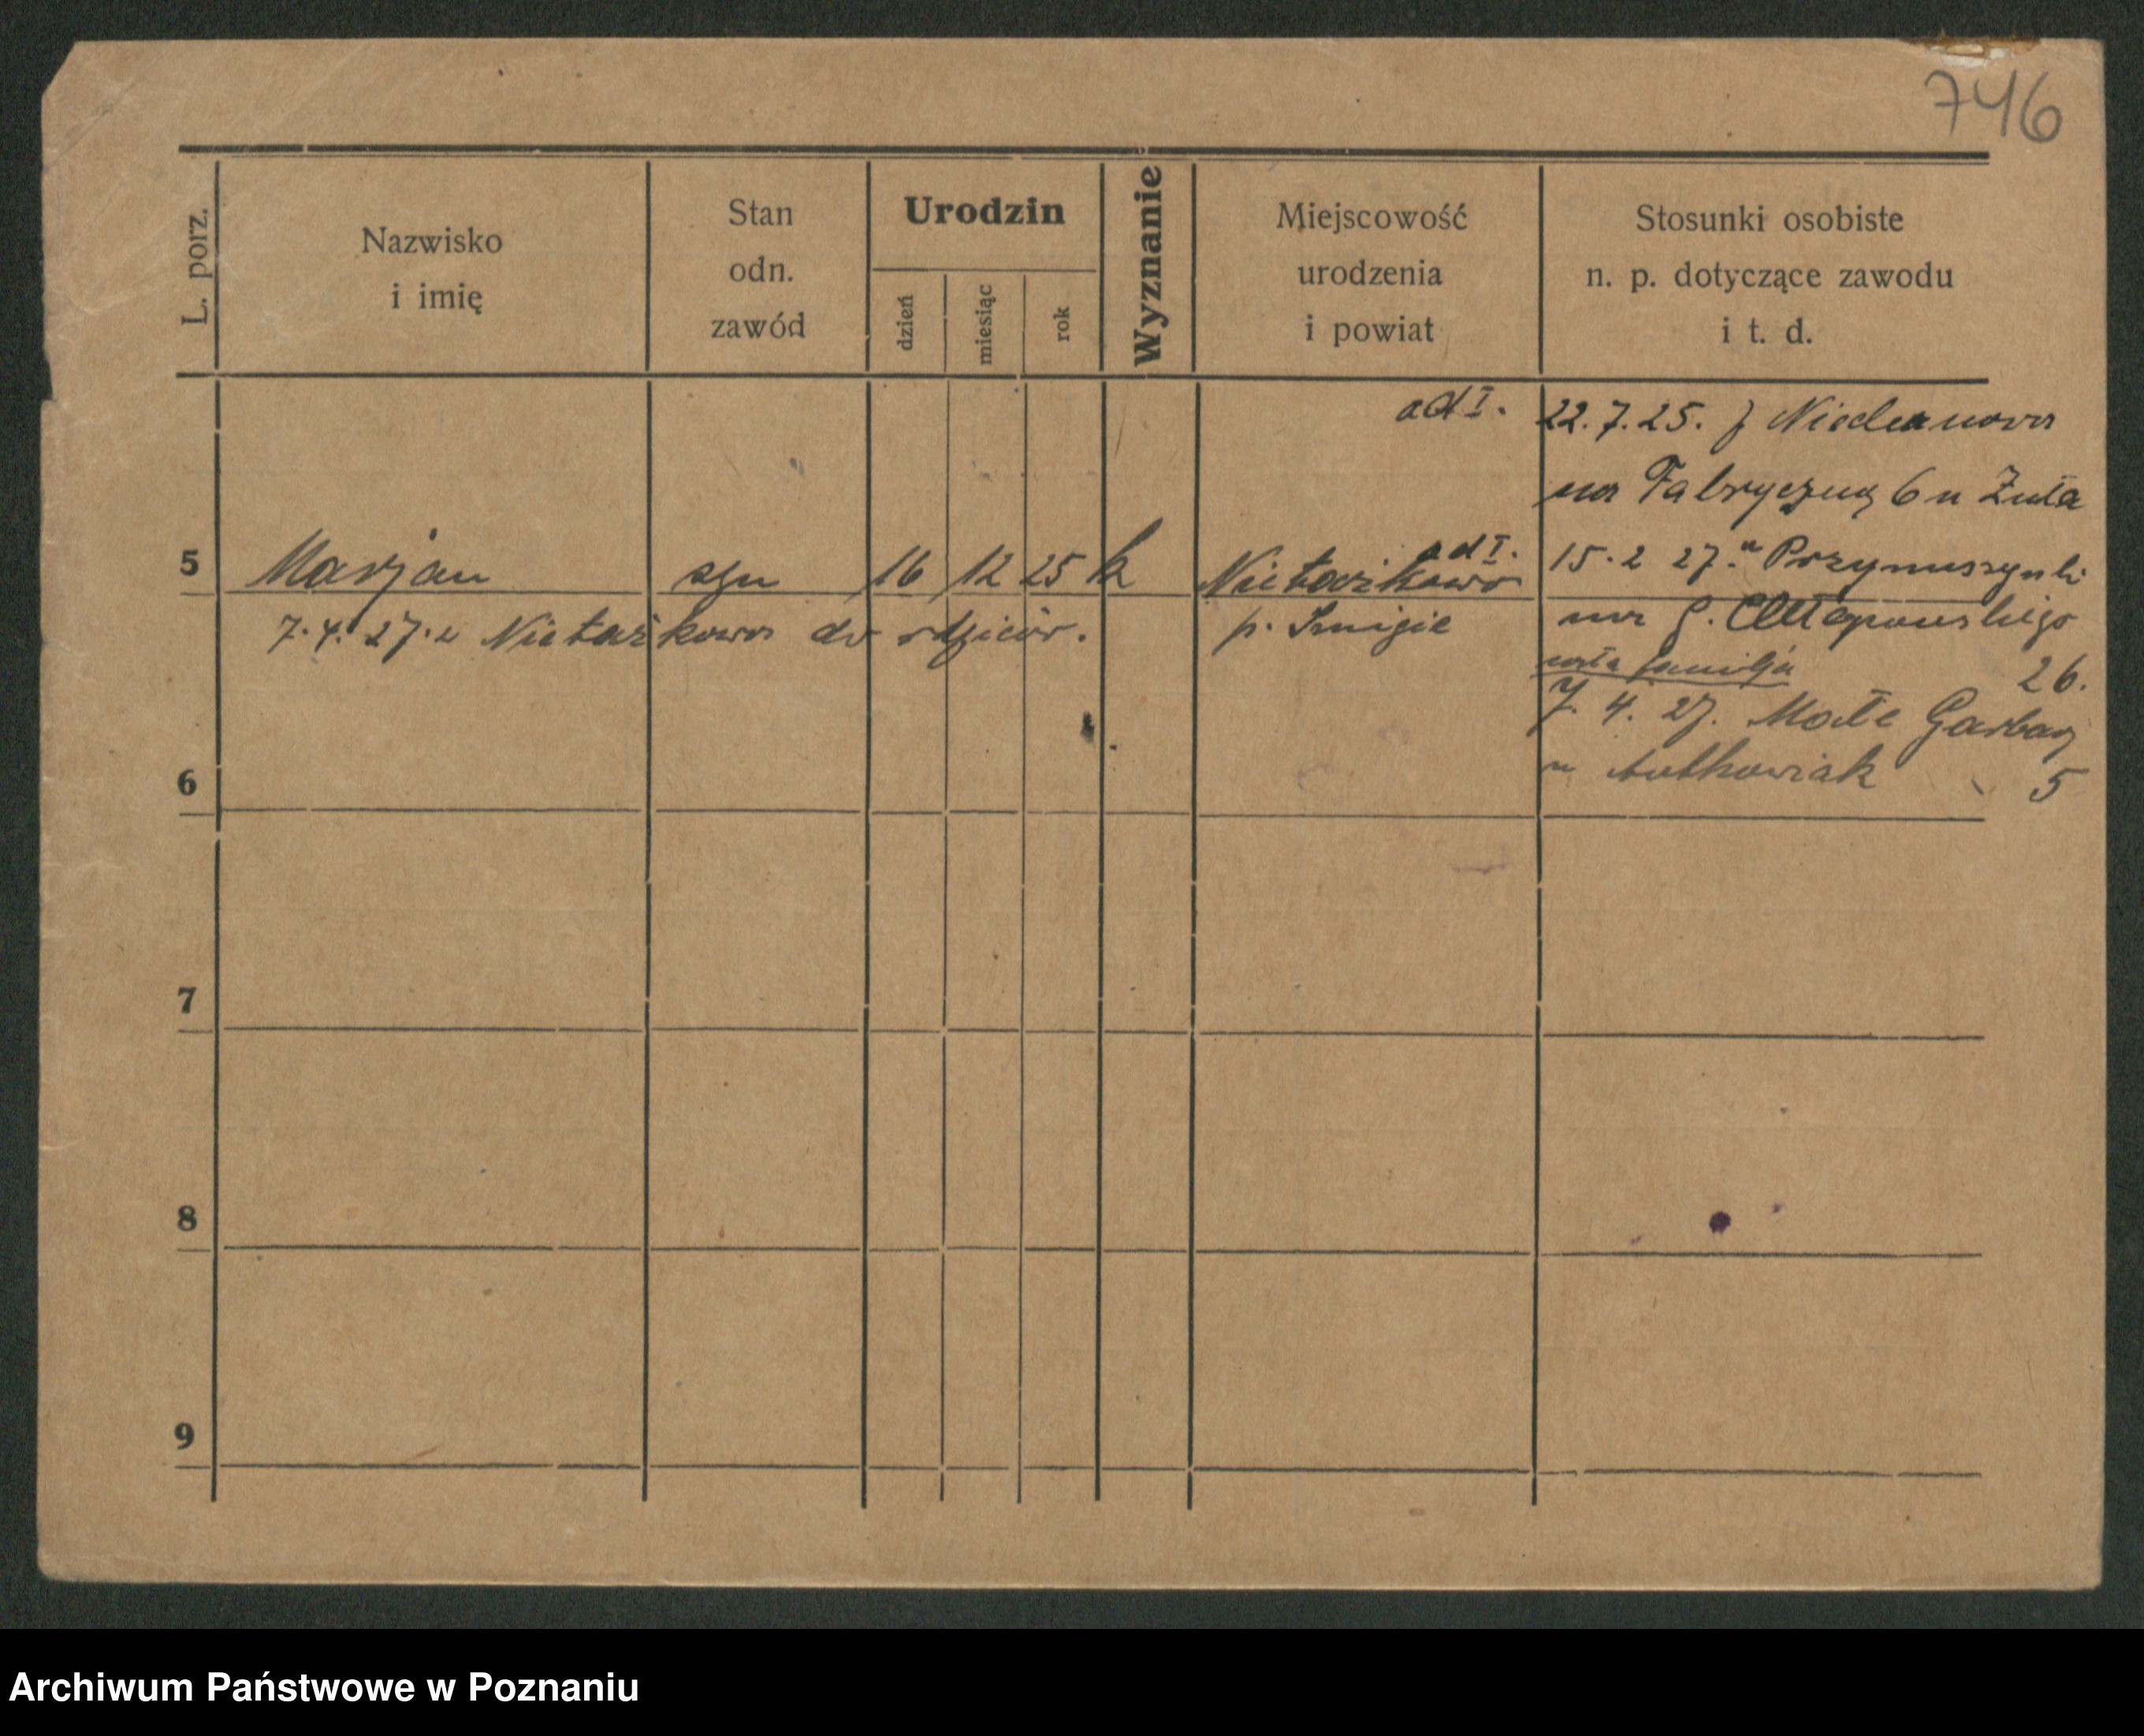 746
L. porz.
Nazwisko
i imię
Stan
odn.
zawód
Urodzin
dzień
miesiąc
rok
Wyznanie
Miejscowość
urodzenia
i powiat
Stosunki osobiste
n. p. dotyczące zawodu
i t. d.
ad I. 22.7.25. z
na Fabryczną 6 u Żuta
5 Marjan syn 16 12 25 k Nietążkowo ad I. 15.2 27. u
7.4.27. z Nietążkowa do rodziców. p. Śmigiel na J. Chłapowskiego
cała familja 26.
7. 4. 27. Małe Garbary
6 u Antkowiak 5
7
8
9
Archiwum Państwowe w Poznaniu